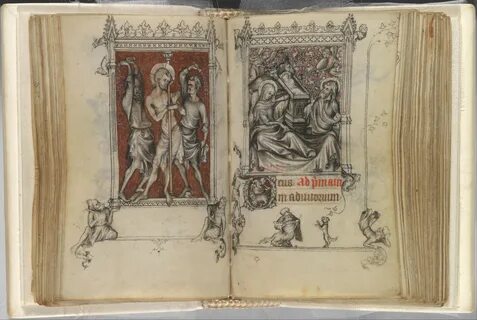 Deus. Ad pmam
in adiutorium